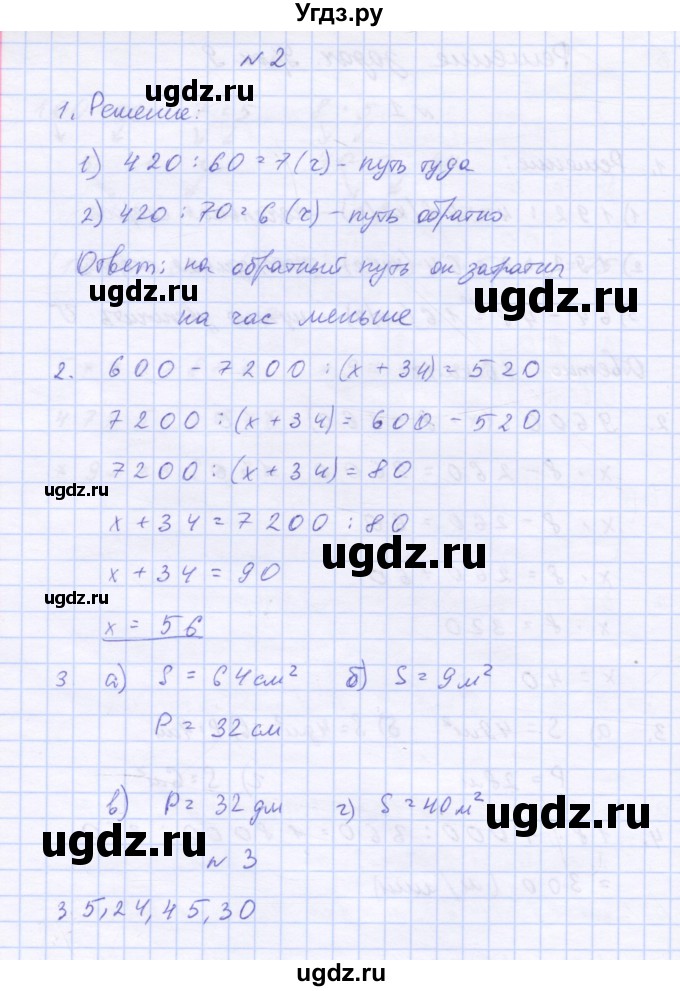 Угдз.ру
N 2
ugdz.ru
1. Решение:
1) 420 : 60 = 7 (ч) - путь туда
ugdz.ru
2) 420 : 70 = 6 (ч) - путь обратно
Ответ: на обратный путь он затратил
ugdz.ru ugdz.ru
на час меньше
2. 600 - 7200 : (x + 34) = 520
7200 : (x + 34) = 600 - 520
7200 : (x + 34) = 80
ugdz.ru
x + 34 = 7200 : 80
ugdz.ru
x + 34 = 90
ugdz.ru
x = 56
3 а) S = 64 см² б) S = 9 м²
P = 32 см
в) P = 32 дм г) S = 40 м²
ugdz.ru ugdz.ru
N 3
35, 24, 45, 30
ugdz.ru